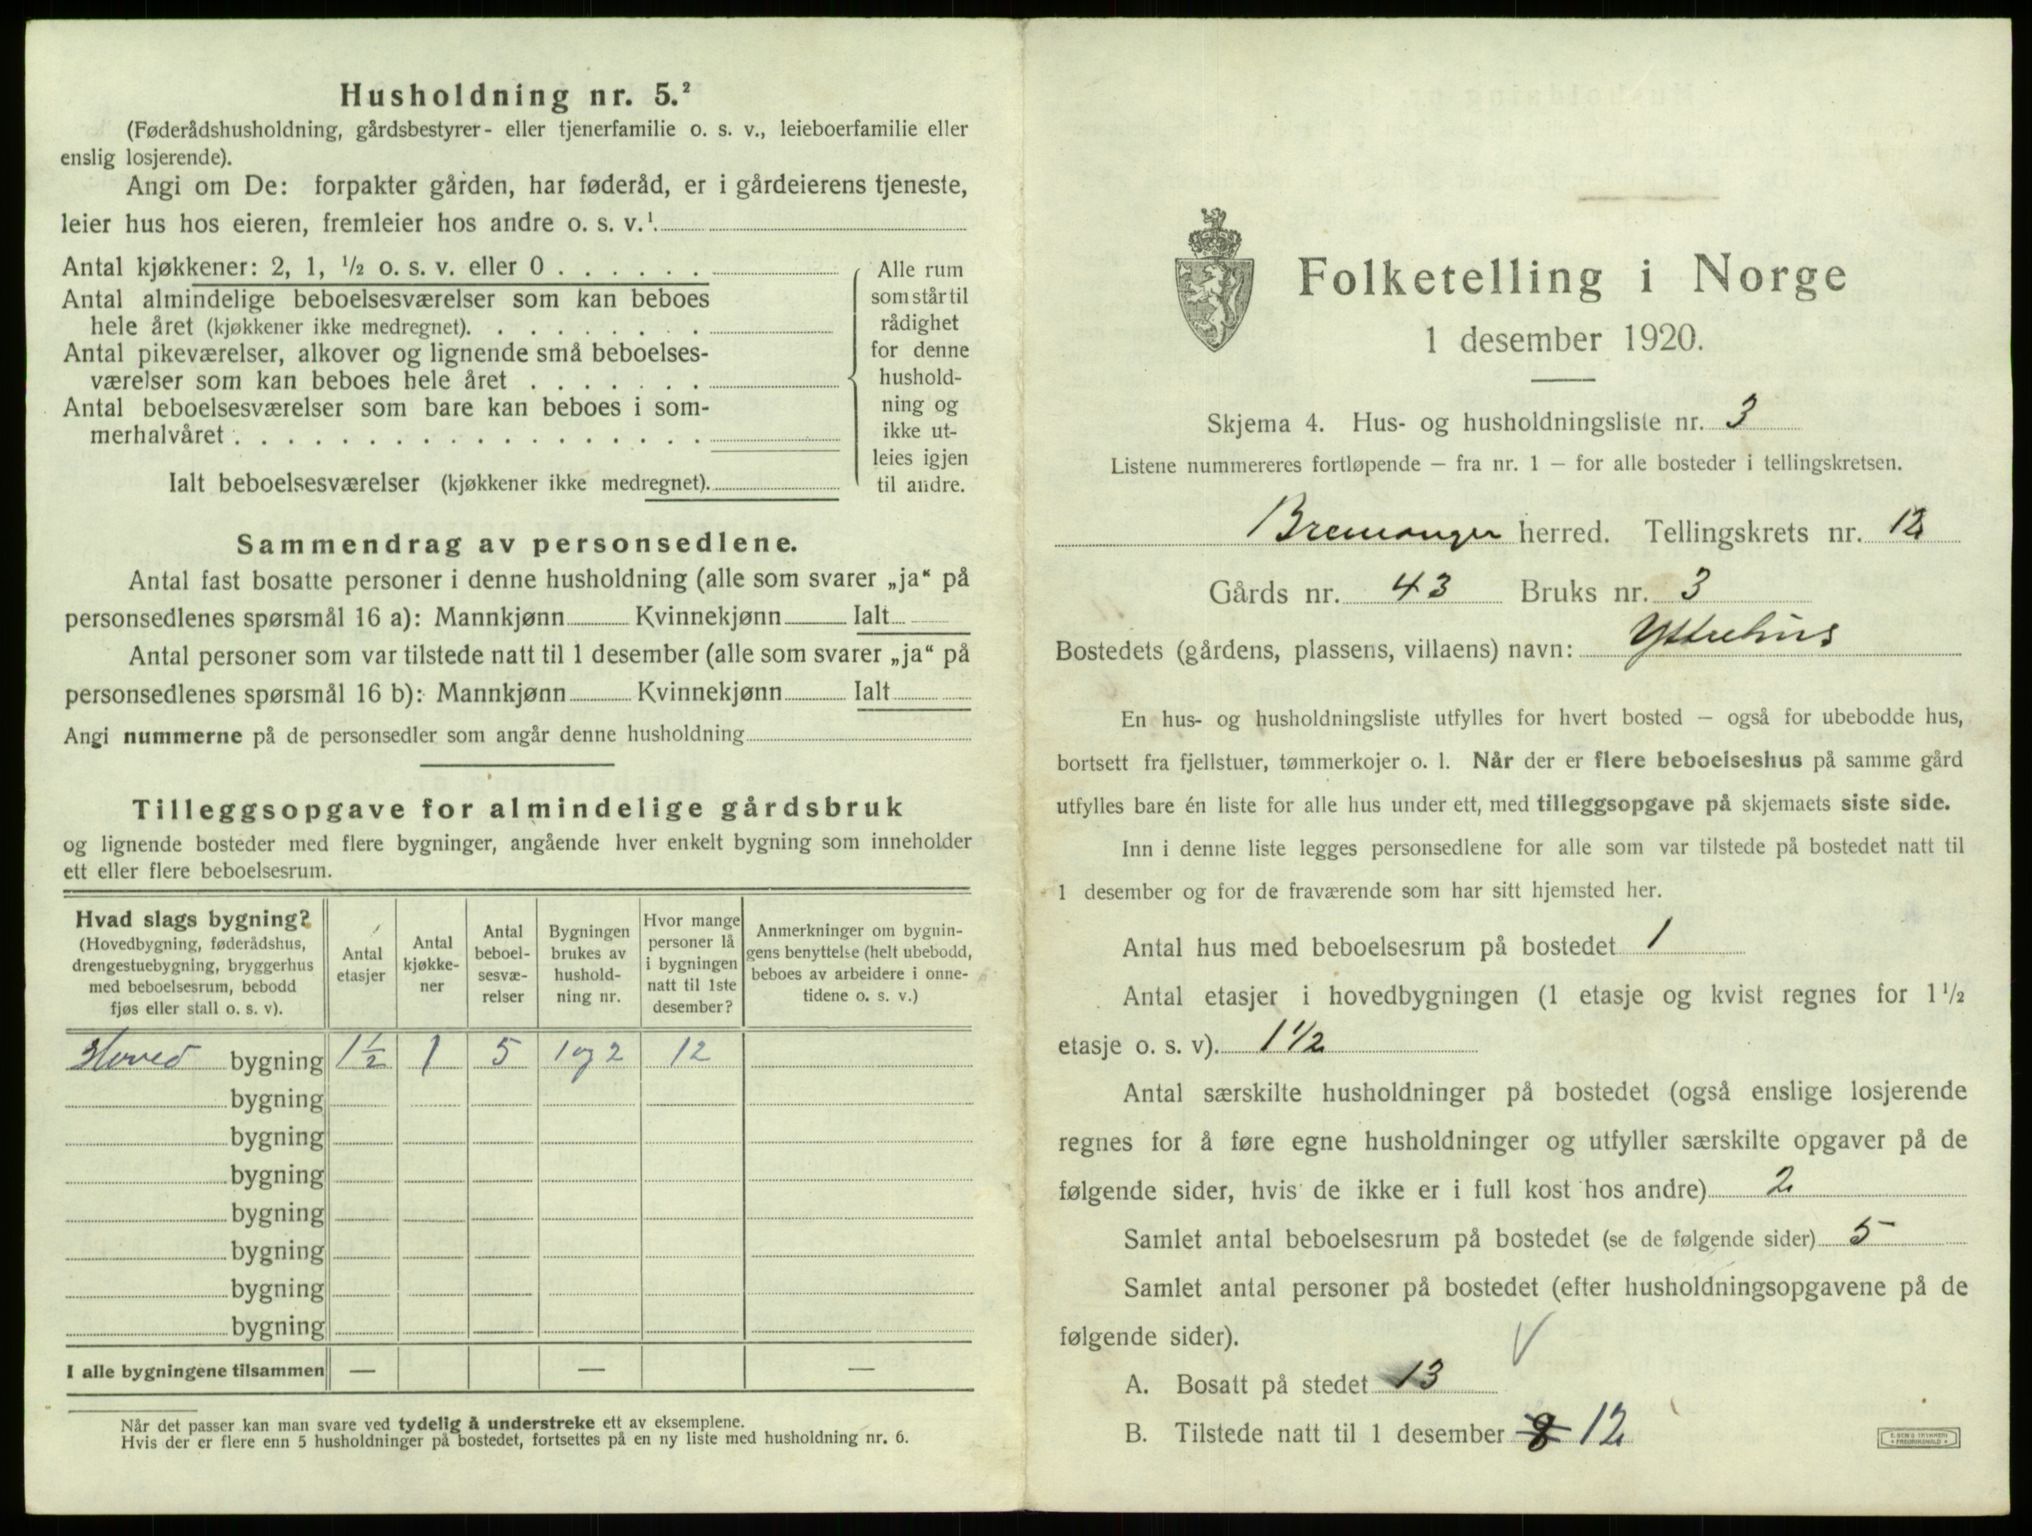 Husholdning nr. 5.²
(Føderådshusholdning, gårdsbestyrer- eller tjenerfamilie o. s. v., leieboerfamilie eller
enslig losjerende).
Angi om De: forpakter gården, har føderåd, er i gårdeierens tjeneste,
leier hus hos eieren, fremleier hos andre o. s. v.¹
Antal kjøkkener: 2, 1, ½ o. s. v. eller 0 . . . . . .
Antal almindelige beboelsesværelser som kan beboes
hele året (kjøkkener ikke medregnet). . . . . . . . .
Antal pikeværelser, alkover og lignende små beboelses-
værelser som kan beboes hele året . . . . . . .
Antal beboelsesværelser som bare kan beboes i som-
merhalvåret . . . . . . . . . . . . . . . . . .
Ialt beboelsesværelser (kjøkkener ikke medregnet).
Alle rum
som står til
rådighet
for denne
hushold-
ning og
ikke ut-
leies igjen
til andre.
Sammendrag av personsedlene.
Antal fast bosatte personer i denne husholdning (alle som svarer „ja“ på
personsedlenes spørsmål 16 a): Mannkjønn Kvinnekjønn Ialt
Antal personer som var tilstede natt til 1 desember (alle som svarer „ja“ på
personsedlenes spørsmål 16 b): Mannkjønn Kvinnekjønn Ialt
Angi nummerne på de personsedler som angår denne husholdning
Tilleggsopgave for almindelige gårdsbruk
og lignende bosteder med flere bygninger, angående hver enkelt bygning som inneholder
ett eller flere beboelsesrum.
Hvad slags bygning?
(Hovedbygning, føderådshus,
drengestuebygning, bryggerhus
med beboelsesrum, bebodd
fjøs eller stall o. s. v).
Antal
etasjer
Antal
kjøkke-
ner
Antal
beboel-
sesvæ-
relser
Bygningen
brukes av
hushold-
ning nr.
Hvor mange
personer lå
i bygningen
natt til 1ste
desember?
Anmerkninger om bygnin-
gens benyttelse (helt ubebodd,
beboes av arbeidere i onne-
tidene o. s. v.)
Hoved bygning 1½ 1 5 1 og 2 12
bygning
bygning
bygning
bygning
bygning
bygning
bygning
I alle bygningene tilsammen — — —
Når det passer kan man svare ved tydelig å understreke ett av eksemplene.
Hvis der er flere enn 5 husholdninger på bostedet, fortsettes på en ny liste med husholdning nr. 6.
Folketelling i Norge
1 desember 1920.
Skjema 4. Hus- og husholdningsliste nr. 3
Listene nummereres fortløpende – fra nr. 1 – for alle bosteder i tellingskretsen.
Bremanger herred. Tellingskrets nr. 12
Gårds nr. 43 Bruks nr. 3
Bostedets (gårdens, plassens, villaens) navn: Yttrehus
En hus- og husholdningsliste utfylles for hvert bosted – også for ubebodde hus,
bortsett fra fjellstuer, tømmerkojer o. l. Når der er flere beboelseshus på samme gård
utfylles bare én liste for alle hus under ett, med tilleggsopgave på skjemaets siste side.
Inn i denne liste legges personsedlene for alle som var tilstede på bostedet natt til
1 desember og for de fraværende som har sitt hjemsted her.
Antal hus med beboelsesrum på bostedet 1
Antal etasjer i hovedbygningen (1 etasje og kvist regnes for 1½
etasje o. s. v). 1½
Antal særskilte husholdninger på bostedet (også enslige losjerende
regnes for å føre egne husholdninger og utfyller særskilte opgaver på de
følgende sider, hvis de ikke er i full kost hos andre) 2
Samlet antal beboelsesrum på bostedet (se de følgende sider) 5
Samlet antal personer på bostedet (efter husholdningsopgavene på de
følgende sider).
A. Bosatt på stedet 13
B. Tilstede natt til 1 desember 8 12